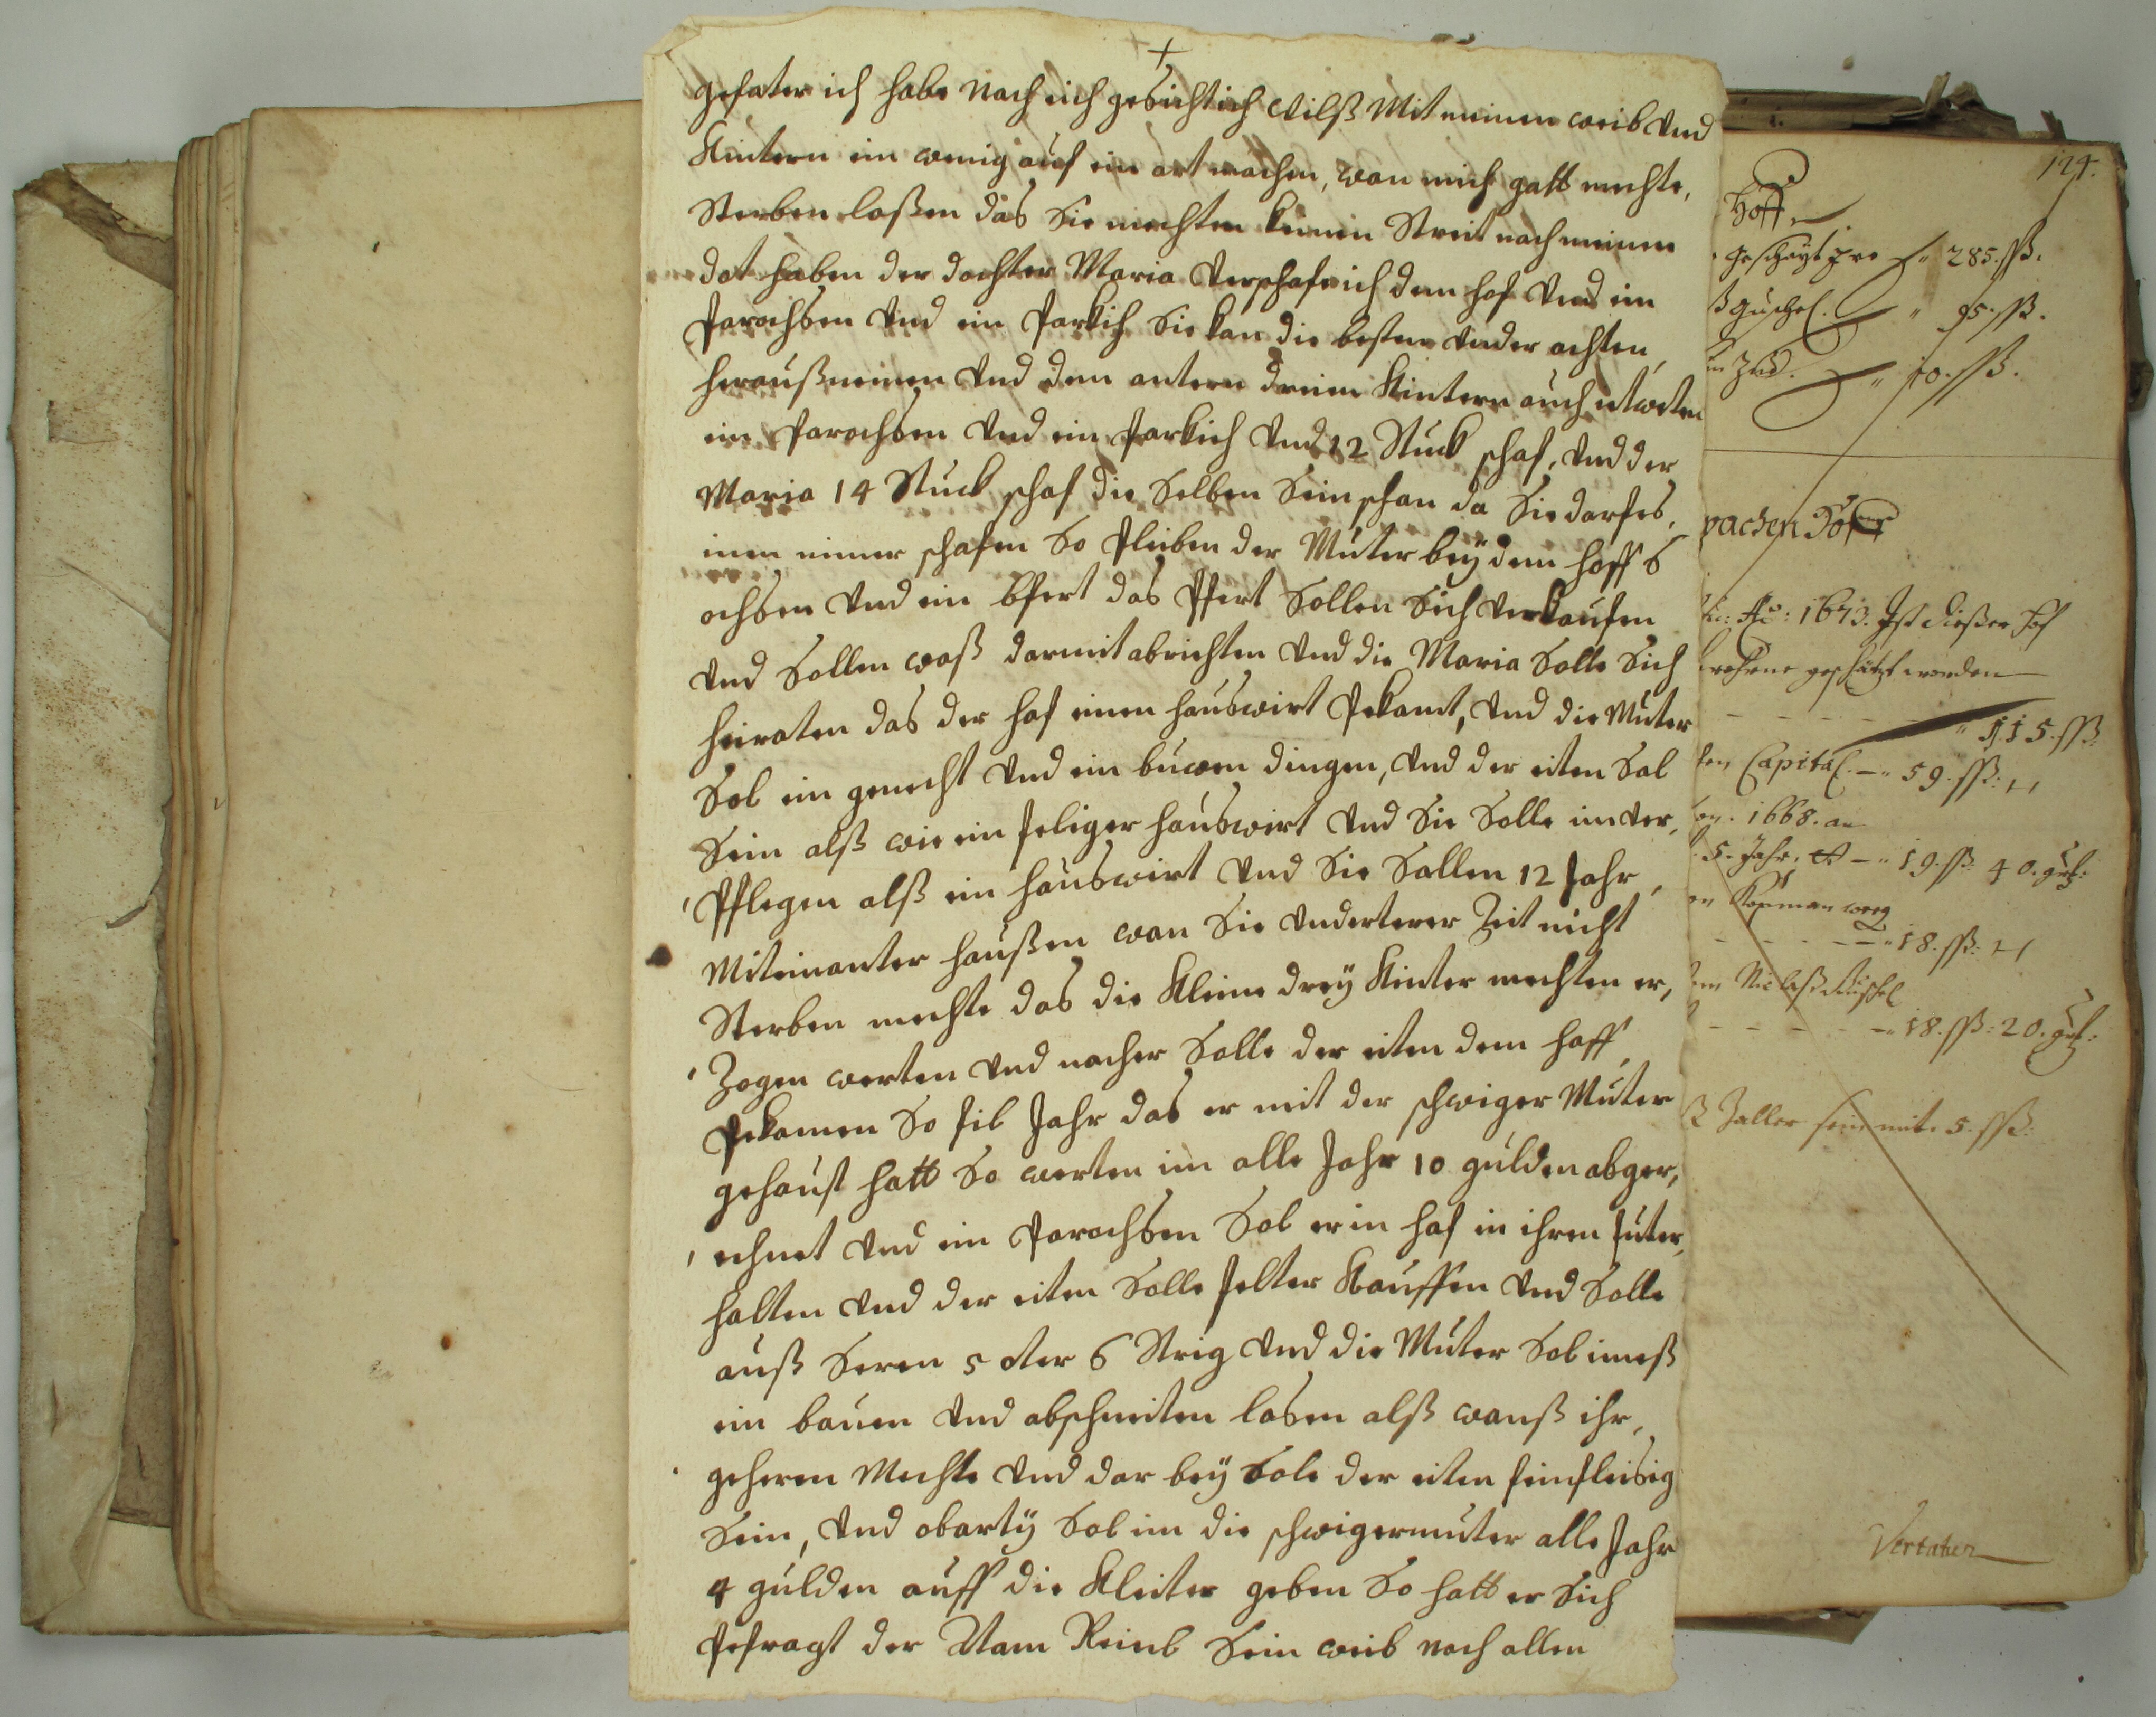 +
gefater ich habe nach eich geschickt ich wilß mit meinen weib und
Kintern ein wenig auf ein ort machen, wan mich gott mechte,
Sterben laßen das Sie mechten keinen Streit nach meinen
dot haben der dochter Maria verschafe ich den hof und ein
Parochsen und ein Parkih Sie kan die besten under ochten,
heraußnemen und den antern dreien Kintern auch itweten
ein Parochsen und ein Parkich und 12 Stuck schaf, und der
Maria 14 Stuck schaf die Selben Sein schan da Sie darf es,
inen nimer schafen So pleiben der Muter beÿ dem hoff 6
ochsen und ein Pfert das Pfert Sollen Sich verkaufen
und Sollen waß darmit abrichten und die Maria Solle Sich
heiraten das der hof einen hauswirt Pekamt, und die Muter
Sol ein genecht und ein buwen dingen, und der eiten Sol
Sein alß wie ein seliger hauswirt und Sie Solle im ver,
Pflegen alß ein hauswirt und Sie Sollen 12 Jahr,
Miteinanter haußen wan Sie underterer Zeit nicht
Sterben mechte das die Kleine dreÿ Kinter mechten er,
Zogen werten und nacher Solle der eiten den hoff,
Pekamen So fil Jahr das er mit der schwiger Muter
gehaust hatt So werten im alle Jahr 10 gulden abger,
echnet und ein Parochsen Sol er in hof in ihren futer,
halten und der eiten Solle selter Kauffen und Solle
auß Seren 5 oter 6 Strig und die Muter Sol imeß
ein bauen und abschneiten lasen alß wanß ihr,
geheren Mechte und dar beÿ Sole der eiten fein fleisig
Sein, und obartÿ Sol im die schwigermuter alle Jahr
4 gulden auff die Kleiter geben So hatt er Sich
Pefragt der Atam Reinl Sein weib nach allen
124.
Hoff
285. ßß.
95. ßß.
10. ßß.
Ao: 1673. Ist dießer hof
geschätzt worden
115. ßß.
Capital. 59. ßß:
1668. an
5. Jahr. 19. ßß 40. grl:
18. ßß:
Niclaß
18. ßß: 20. grl:
mit 5. ßß:
Vertatur